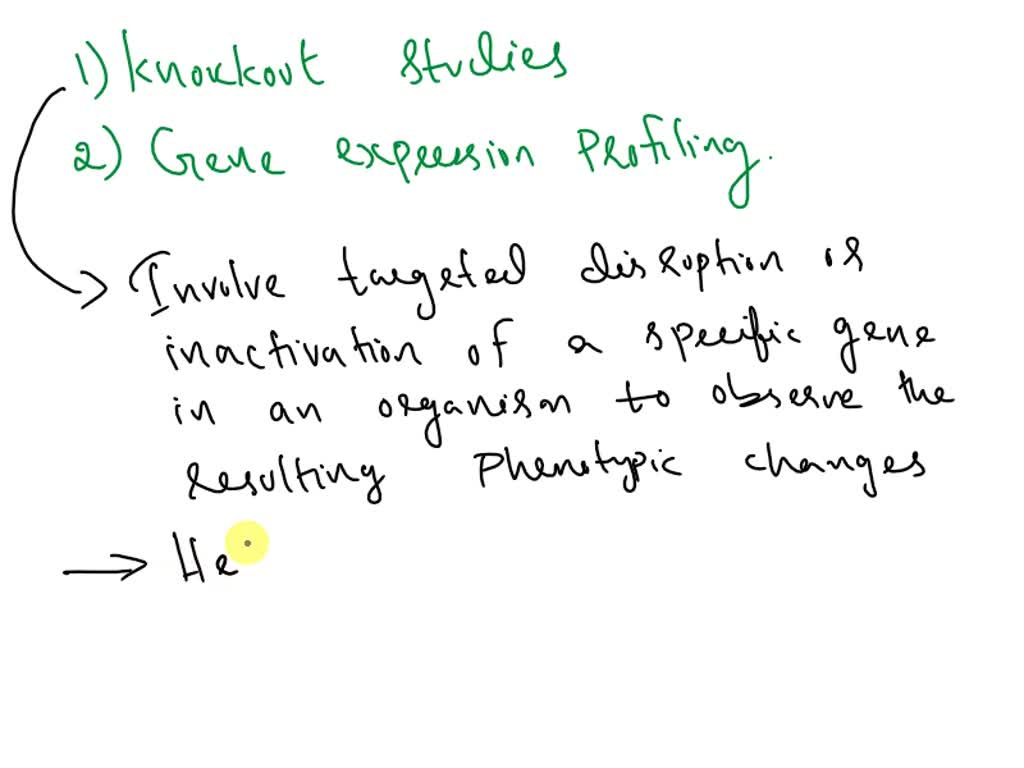 1) Knockout studies
2) Gene expression Profiling.
→ Involve targeted disruption or
inactivation of a specific gene
in an organism to observe the
resulting Phenotypic changes
→ He